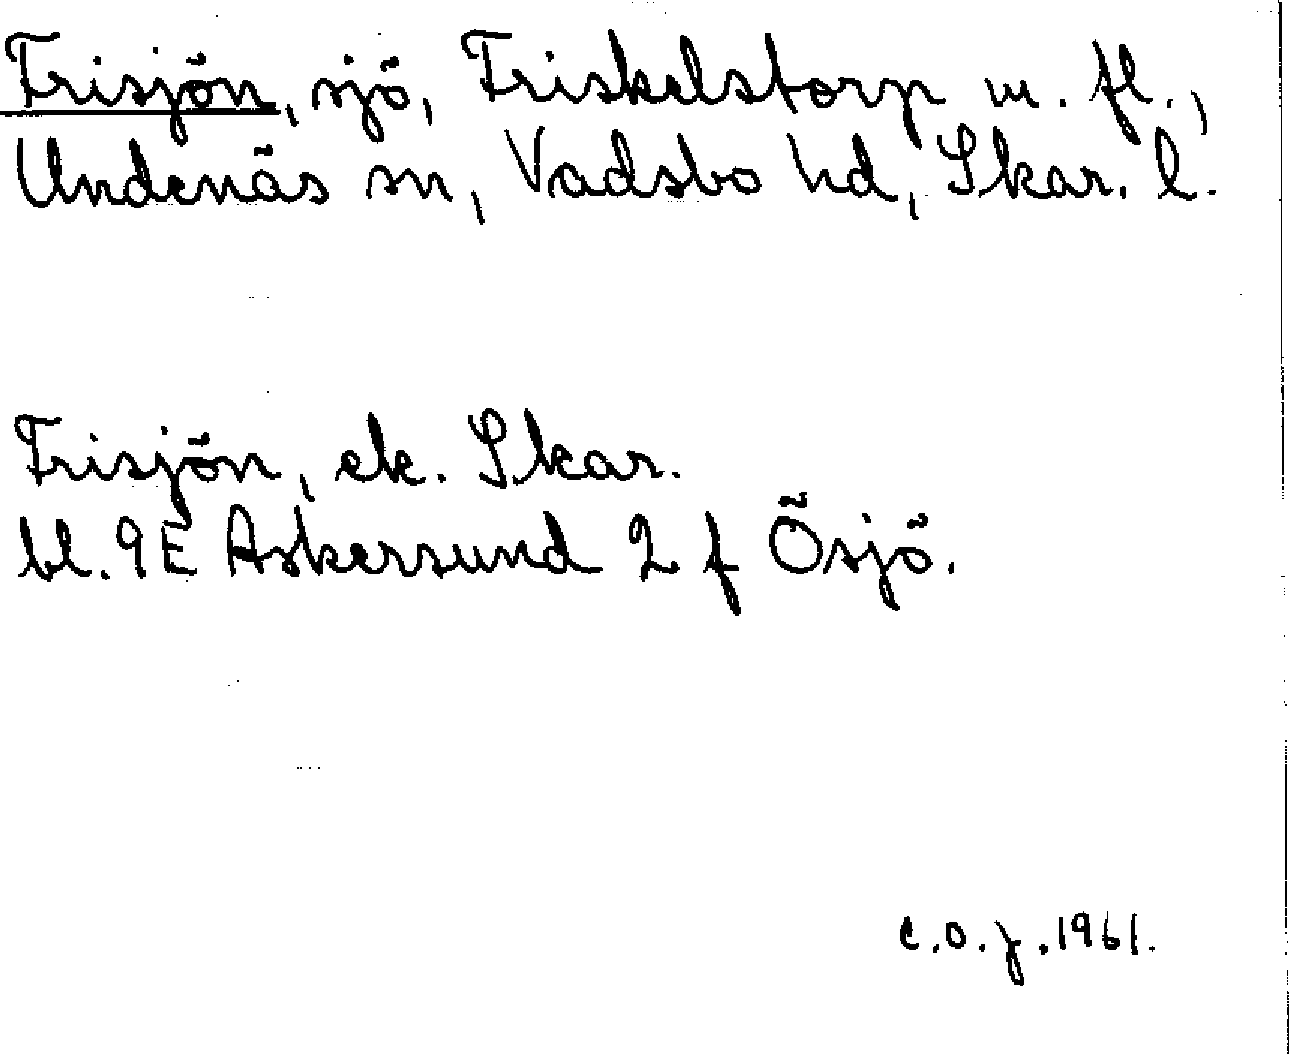 Frisjön, sjö, Friskelstorp m. fl.,
Undenäs sn, Vadsbo hd, Skar. l.
Frisjön, ek. Skar.
bl. 9E Askersund 2 f Ösjö.
C.O.J. 1961.